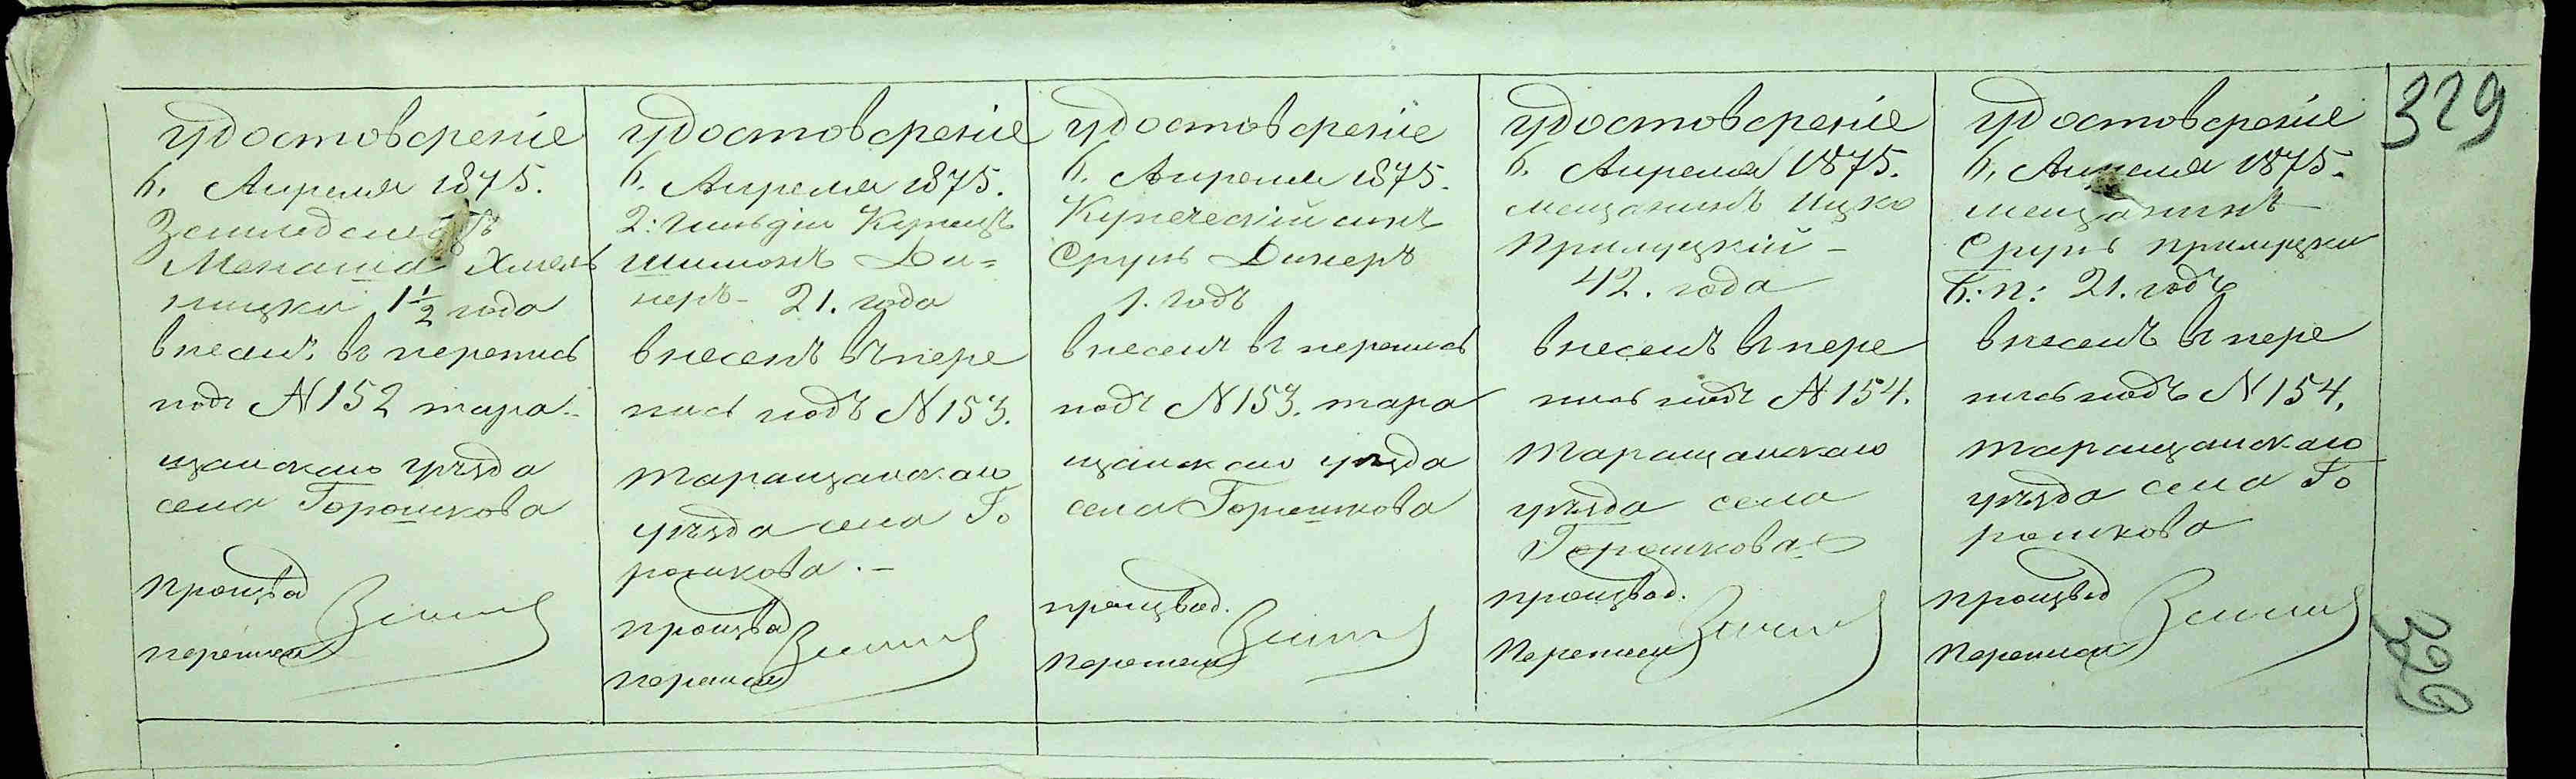 329
удостоверение
6. Апреля 1875.
Земледелецъ
Менаша Хмель
ницки 1 1/2 года
внесенъ въ перепись
подъ N 152 тара-
щанскаго уѣзда
села Горошкова
производ
переписи
удостоверение
6. Апреля 1875.
2: гильдіи Купецъ
Шимонъ Ди=
неръ - 21. года
внесенъ въ пере
пись подъ N 153.
Таращанскаго
уѣзда села Го
рошкова. -
производ
переписи
удостоверение
6. Апреля 1875.
Купеческій сынъ
Сруль Динеръ
1. годъ
внесенъ въ перепись
подъ N 153. тара
щанскаго уѣзда
села Горошкова
производ.
переписи
удостоверение
6. Апреля 1875.
мещанинъ Ицко
Прилуцкій -
42. года
внесенъ въ пере
пись подъ N 154.
Таращанскаго
уѣзда села
Горошкова
производ.
переписи
удостоверение
6, Апреля 1875.
мещанинъ
Сруль Прилуцки
Б: п: 21. годъ
внесенъ въ пере
пись подъ N 154,
Таращанскаго
уѣзда села Го
рошкова
производ
переписи
329